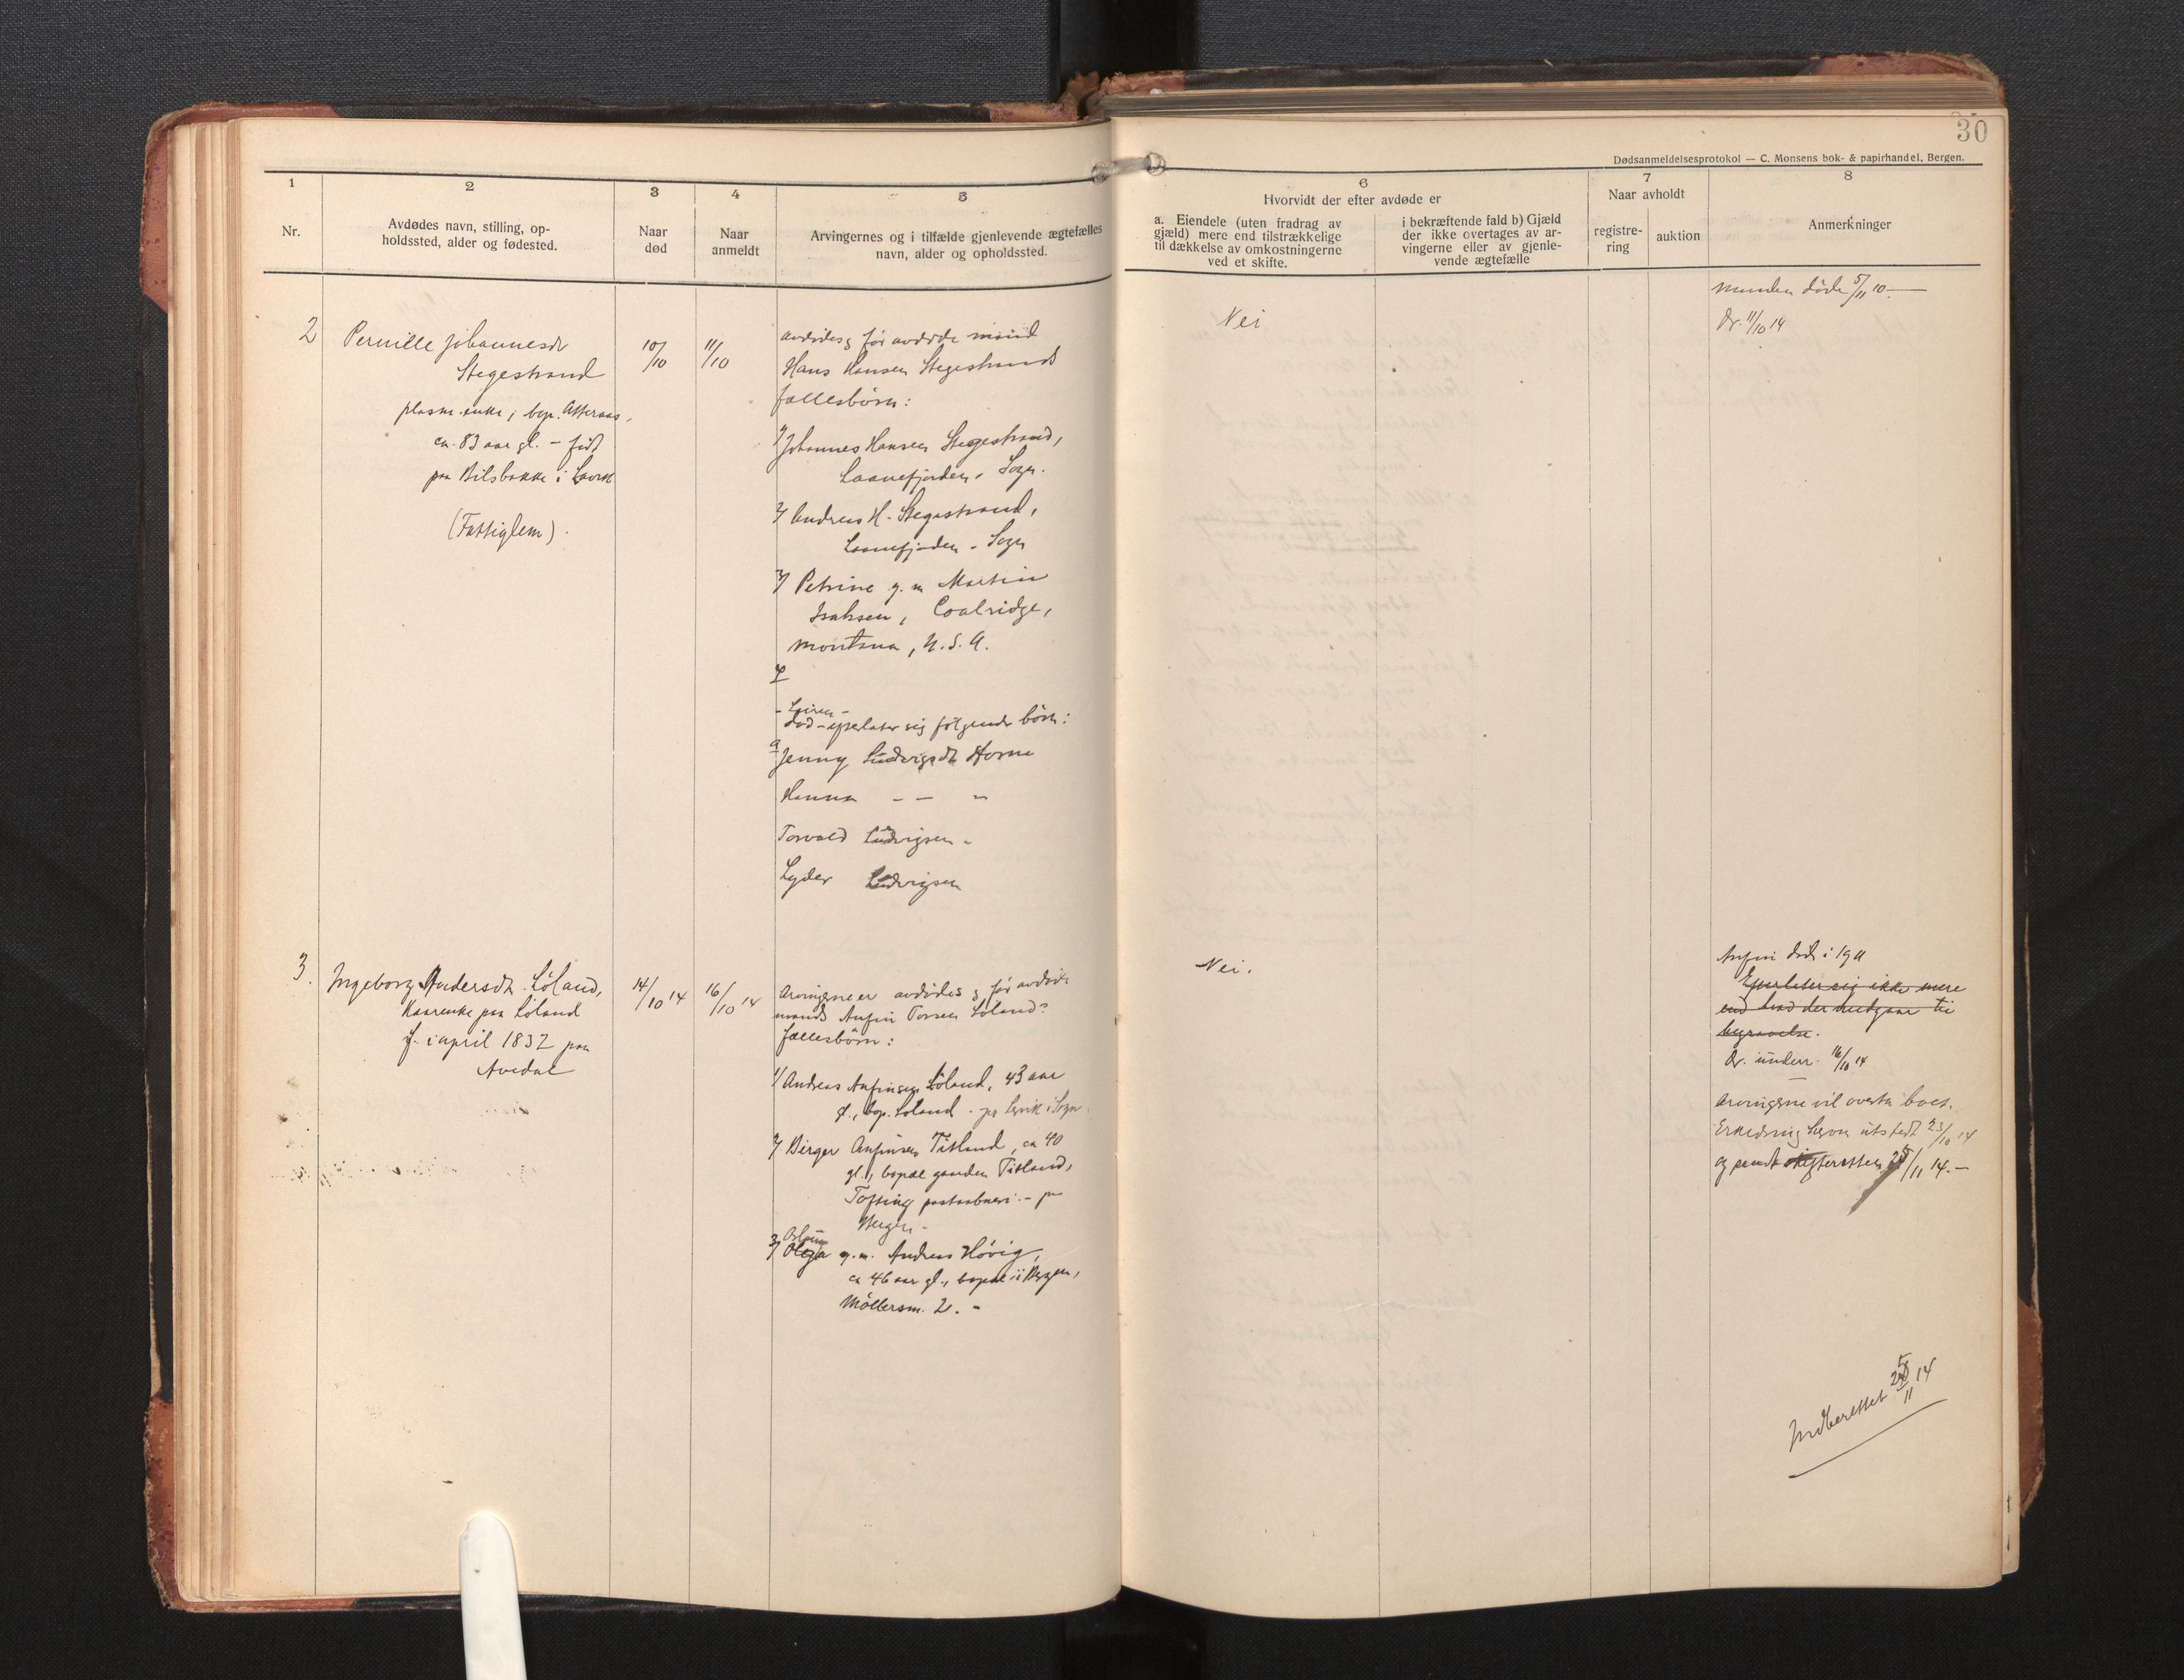 30
Dødsanmeldelsesprotokol — C. Monsens bok- & papirhandel, Bergen.
1
2
3
4
5
6
7
8
Nr.
Avdødes navn, stilling, op-
holdssted, alder og fødested.
Naar
død
Naar
anmeldt
Arvingernes og i tilfælde gjenlevende ægtefælles
navn, alder og opholdssted.
Hvorvidt der efter avdøde er
a. Eiendele (uten fradrag av
gjæld) mere end tilstrækkelige
til dækkelse av omkostningerne
ved et skifte.
i bekræftende fald b) Gjæld
der ikke overtages av ar-
vingerne eller av gjenle-
vende ægtefælle
Naar avholdt
registre-
ring
auktion
Anmerkninger
2
Pernille Johannesdr
Stegestrand
plasm. enke, bop. Atteraas,
ca. 83 aar gl. - født
paa Bilsbakke i Lavik
(Fattiglem).
10/10
11/10
avdødes og før avdøde mand
Hans Hansen Stegestrands
fællesbørn:
1/ Johannes Hansen Stegestrand,
Laanefjorden, Sogn.
2/ Andreas H. Stegestrand,
Laanefjorden - Sogn
3/ Petrine g. m. Martin
Isaksen, Coalridge,
Montana, U. S. A.
4/
død - efterlater sig følgende børn:
a Jenny Ludvigsdt Horne
Hanna - — "
Torvald Ludvigsen "
Lyder Ludvigsen
Nei
Manden døde 5/11 10. —
Dr. 11/10 14
3.
Ingeborg Andersdt. Løland,
Kaarenke paa Løland
f. i april 1832 paa
Avedal
14/10 14
16/10 14
Arvingerne er avdødes og før avdøde
mands Anfin Torsen Løland?
fællesbørn:
1/ Andreas Anfinsen Løland, 43 aar
gl., bop. Løland - pr Lavik i Sogn
2/ Birger Anfinsen Titland, ca 40
gl., bopæl gaarden Titland,
Tofting postaabneri - pr
Bergen -
3/ Olga g. m. Andreas Høvig,
ca 46 aar gl., bopæl i Bergen,
Møllersm. 2. -
Nei.
Anfin døde i 1911
Efterlater sig ikke mere
end hvad der medgaar til
begravelse.
Dr. underr. 16/10 14
Arvingerne vil overta boet.
Erklæring herom utstedt 23/10 14
og sendt skifteretten 25/11 14. -
Indberettet 25/11 14